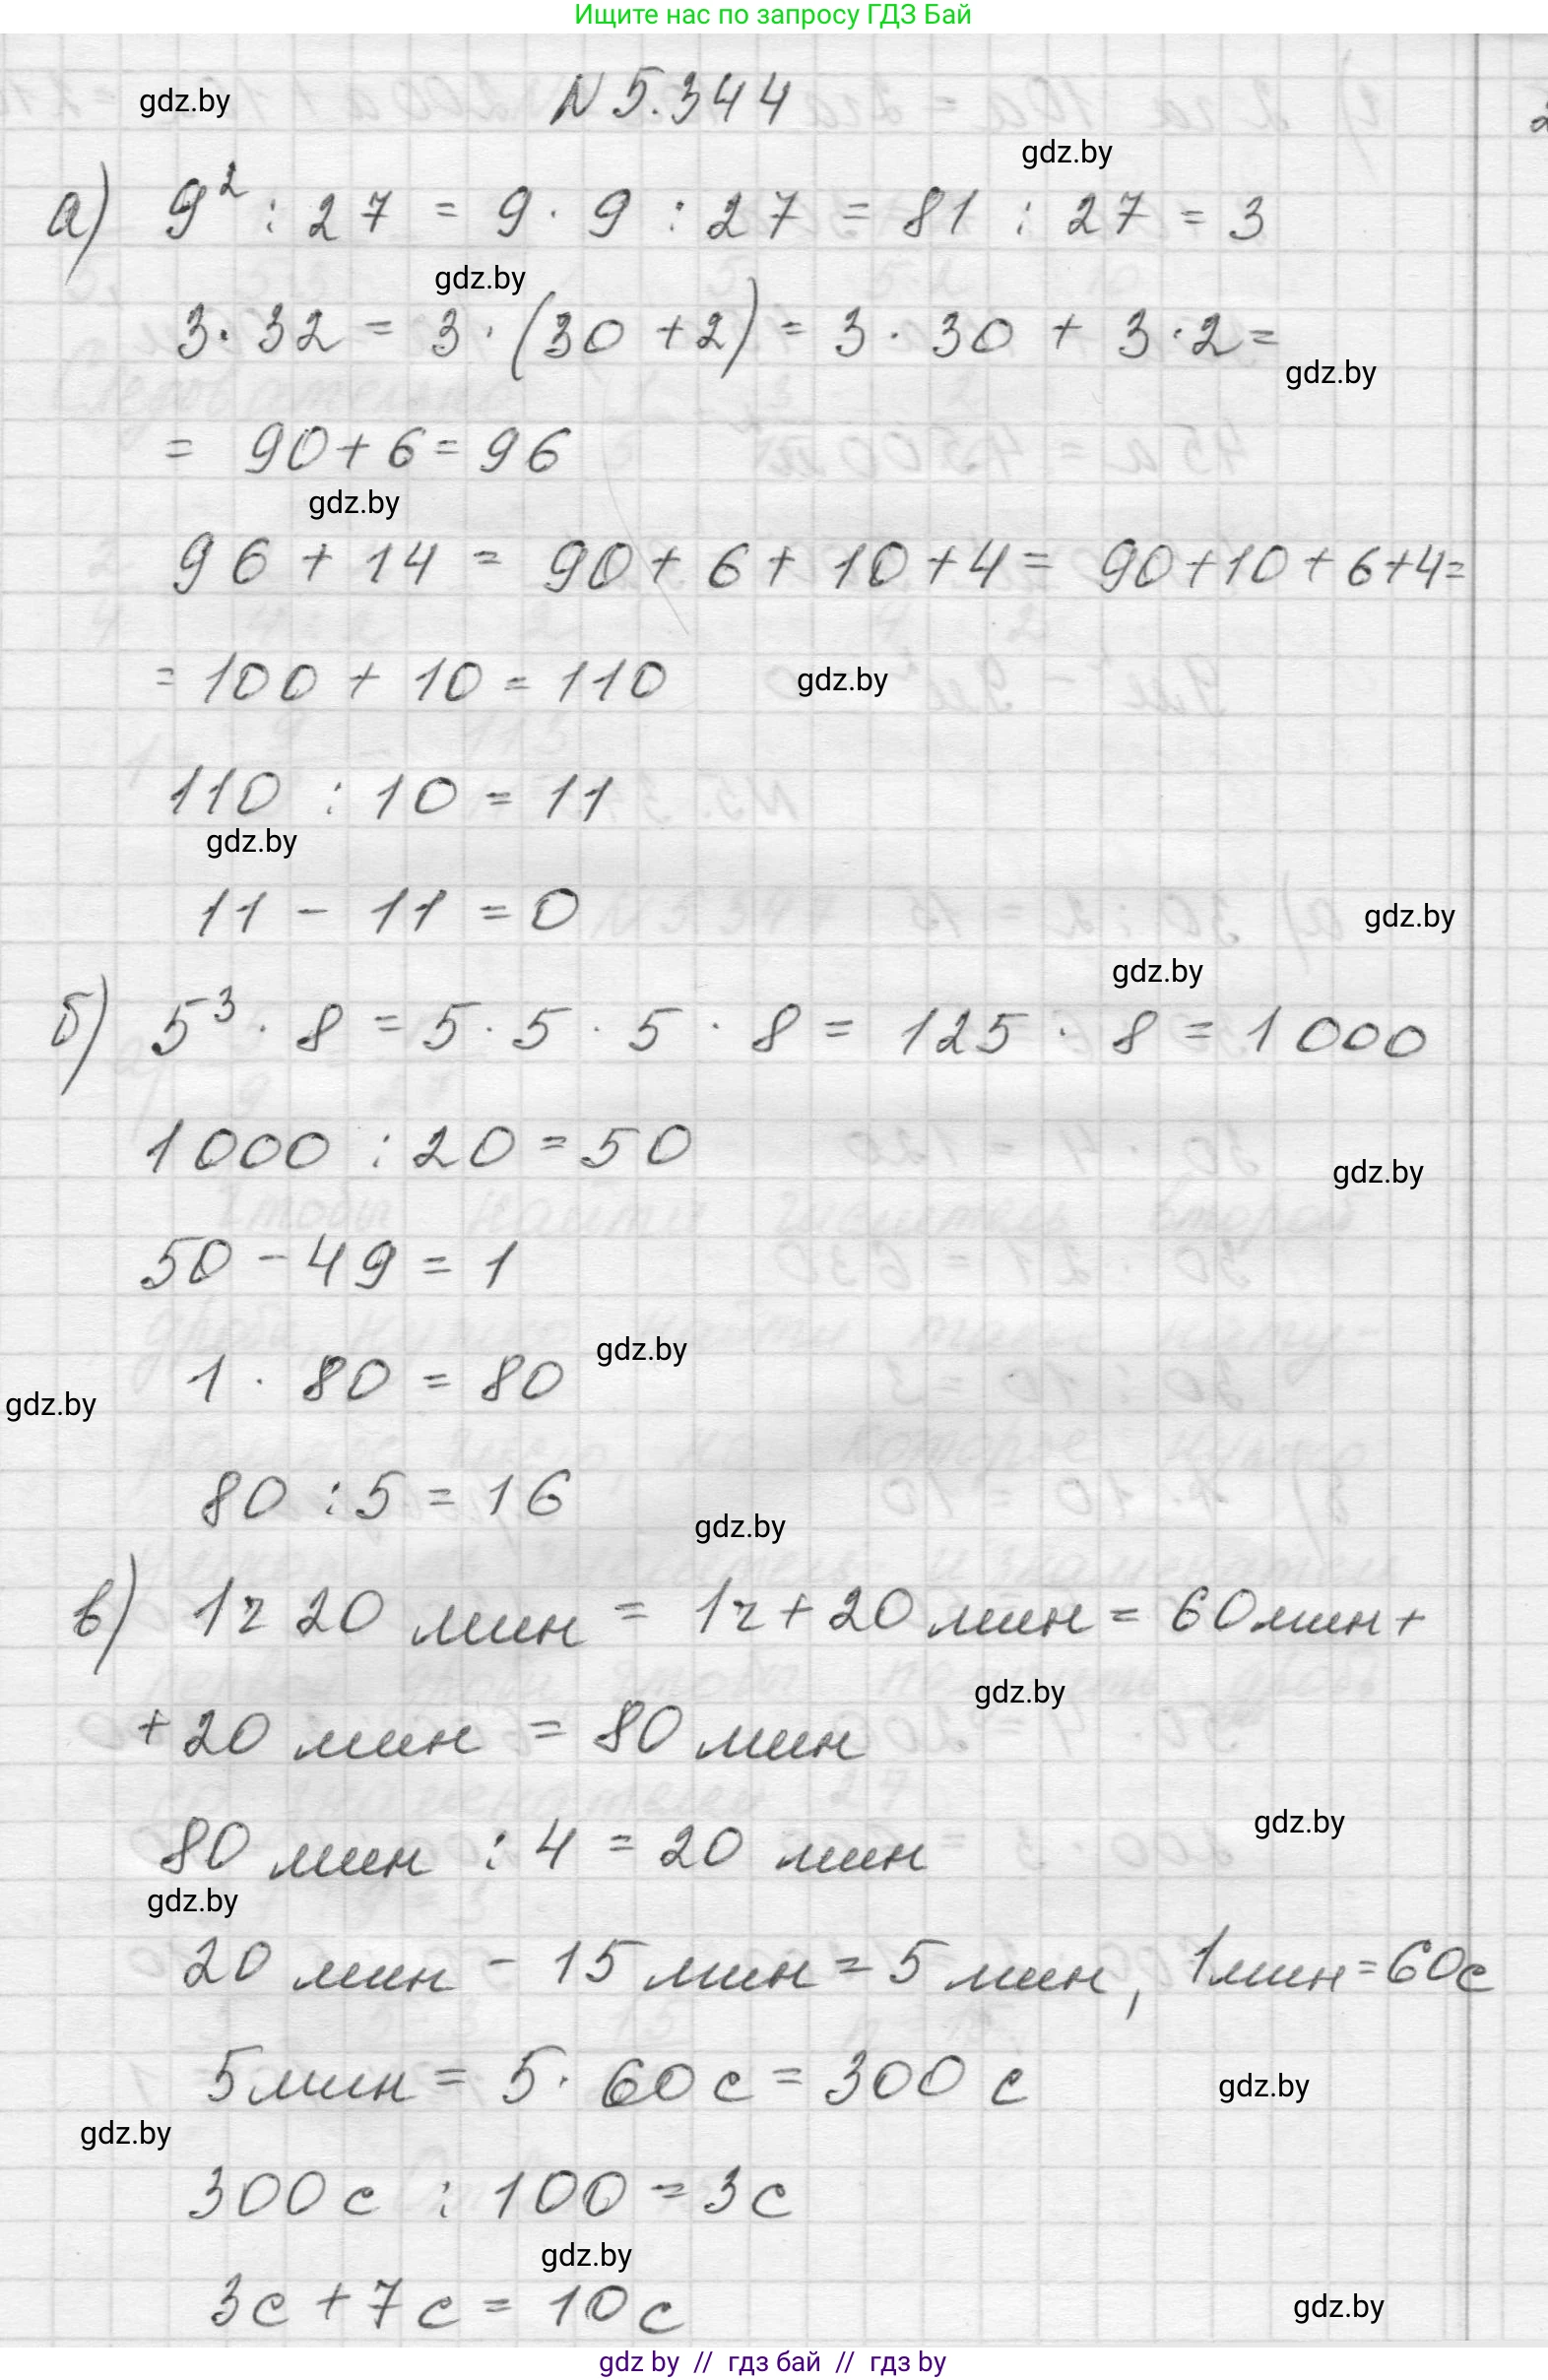 Ищите нас по запросу ГДЗ Бай
N 5.344
gdz.by
gdz.by
а) 9² : 27 = 9 · 9 : 27 = 81 : 27 = 3
gdz.by
3 · 32 = 3 · (30 + 2) = 3 · 30 + 3 · 2 =
gdz.by
= 90 + 6 = 96
gdz.by
96 + 14 = 90 + 6 + 10 + 4 = 90 + 10 + 6 + 4 =
= 100 + 10 = 110
gdz.by
110 : 10 = 11
gdz.by
11 - 11 = 0
gdz.by
gdz.by
б) 5³ · 8 = 5 · 5 · 5 · 8 = 125 · 8 = 1000
1000 : 20 = 50
gdz.by
50 - 49 = 1
gdz.by
1 · 80 = 80
gdz.by
80 : 5 = 16
gdz.by
в) 1ч 20 мин = 1ч + 20 мин = 60 мин +
gdz.by
+ 20 мин = 80 мин
gdz.by
80 мин : 4 = 20 мин
gdz.by
20 мин - 15 мин = 5 мин, 1 мин = 60 с
5 мин = 5 · 60 с = 300 с
gdz.by
gdz.by
300 с : 100 = 3 с
gdz.by
3 с + 7 с = 10 с
gdz.by
gdz by // гдз бай // гдз by